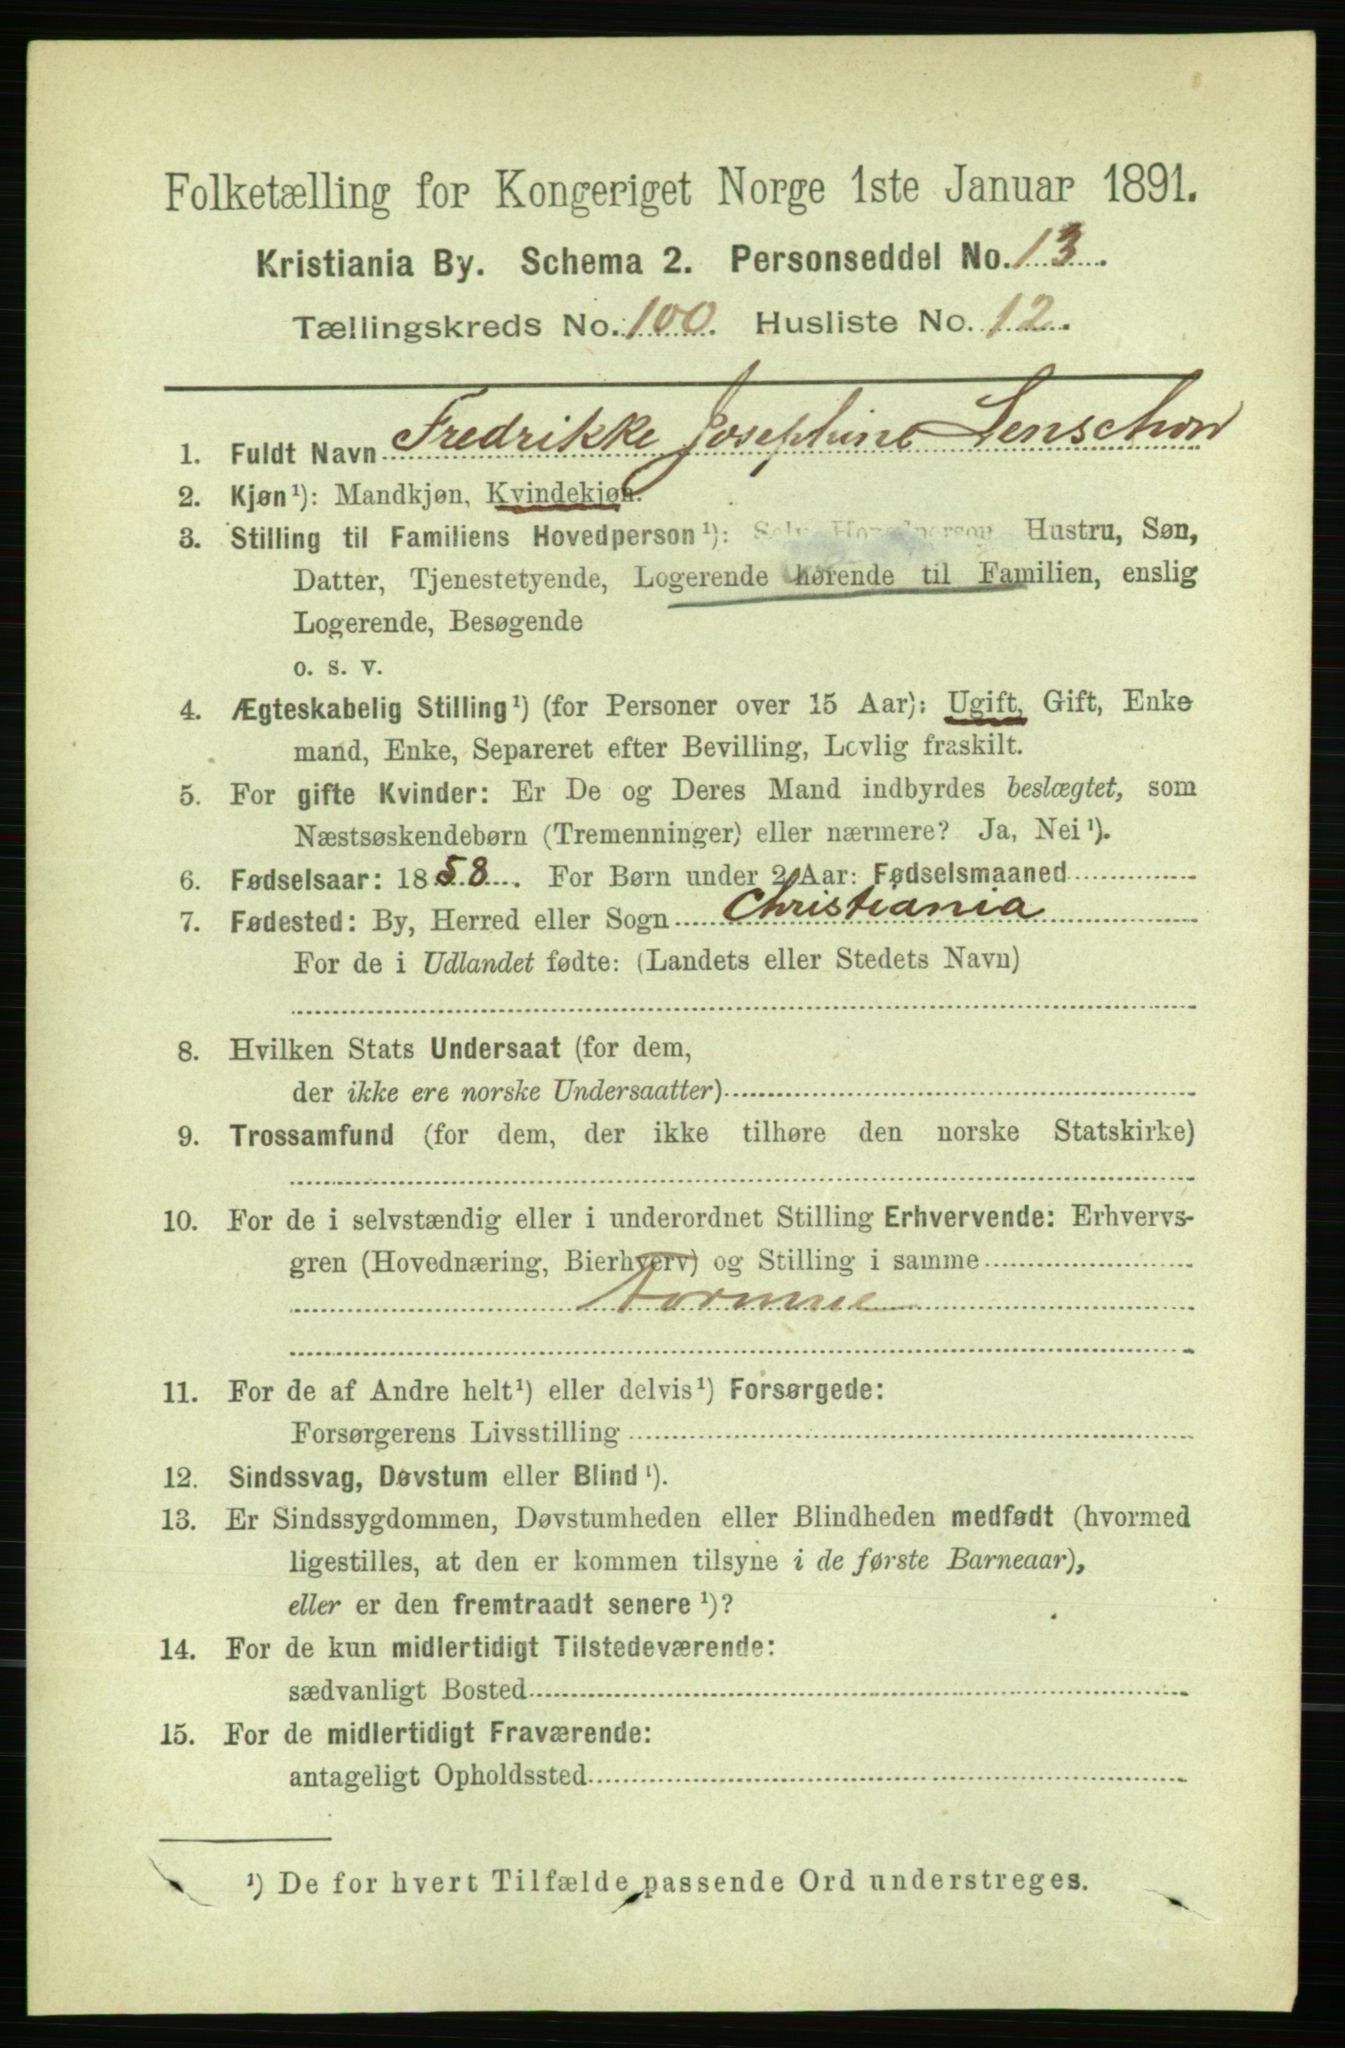 Folketælling for Kongeriget Norge 1ste Januar 1891.
Kristiania By. Schema 2. Personseddel No. 13.
Tællingskreds No. 100. Husliste No. 12.
1. Fuldt Navn Fredrikke Josephine Lenschow
2. Kjøn¹): Mandkjøn, Kvindekjøn.
3. Stilling til Familiens Hovedperson¹): Selv Hovedperson, Hustru, Søn,
Datter, Tjenestetyende, Logerende hørende til Familien, enslig
Logerende, Besøgende
o. s. v.
4. Ægteskabelig Stilling¹) (for Personer over 15 Aar): Ugift, Gift, Enke
mand, Enke, Separeret efter Bevilling, Lovlig fraskilt.
5. For gifte Kvinder: Er De og Deres Mand indbyrdes beslægtet, som
Næstsøskendebørn (Tremenninger) eller nærmere? Ja, Nei¹).
6. Fødselsaar: 1858. For Børn under 2 Aar: Fødselsmaaned
7. Fødested: By, Herred eller Sogn Christiania
For de i Udlandet fødte: (Landets eller Stedets Navn)
8. Hvilken Stats Undersaat (for dem,
der ikke ere norske Undersaatter)
9. Trossamfund (for dem, der ikke tilhøre den norske Statskirke)
10. For de i selvstændig eller i underordnet Stilling Erhvervende: Erhvervs-
gren (Hovednæring, Bierhverv) og Stilling i samme
11. For de af Andre helt¹) eller delvis¹) Forsørgede:
Forsørgerens Livsstilling
12. Sindssvag, Døvstum eller Blind¹).
13. Er Sindssygdommen, Døvstumheden eller Blindheden medfødt (hvormed
ligestilles, at den er kommen tilsyne i de første Barneaar),
eller er den fremtraadt senere¹)?
14. For de kun midlertidigt Tilstedeværende:
sædvanligt Bosted
15. For de midlertidigt Fraværende:
antageligt Opholdssted
¹) De for hvert Tilfælde passende Ord understreges.